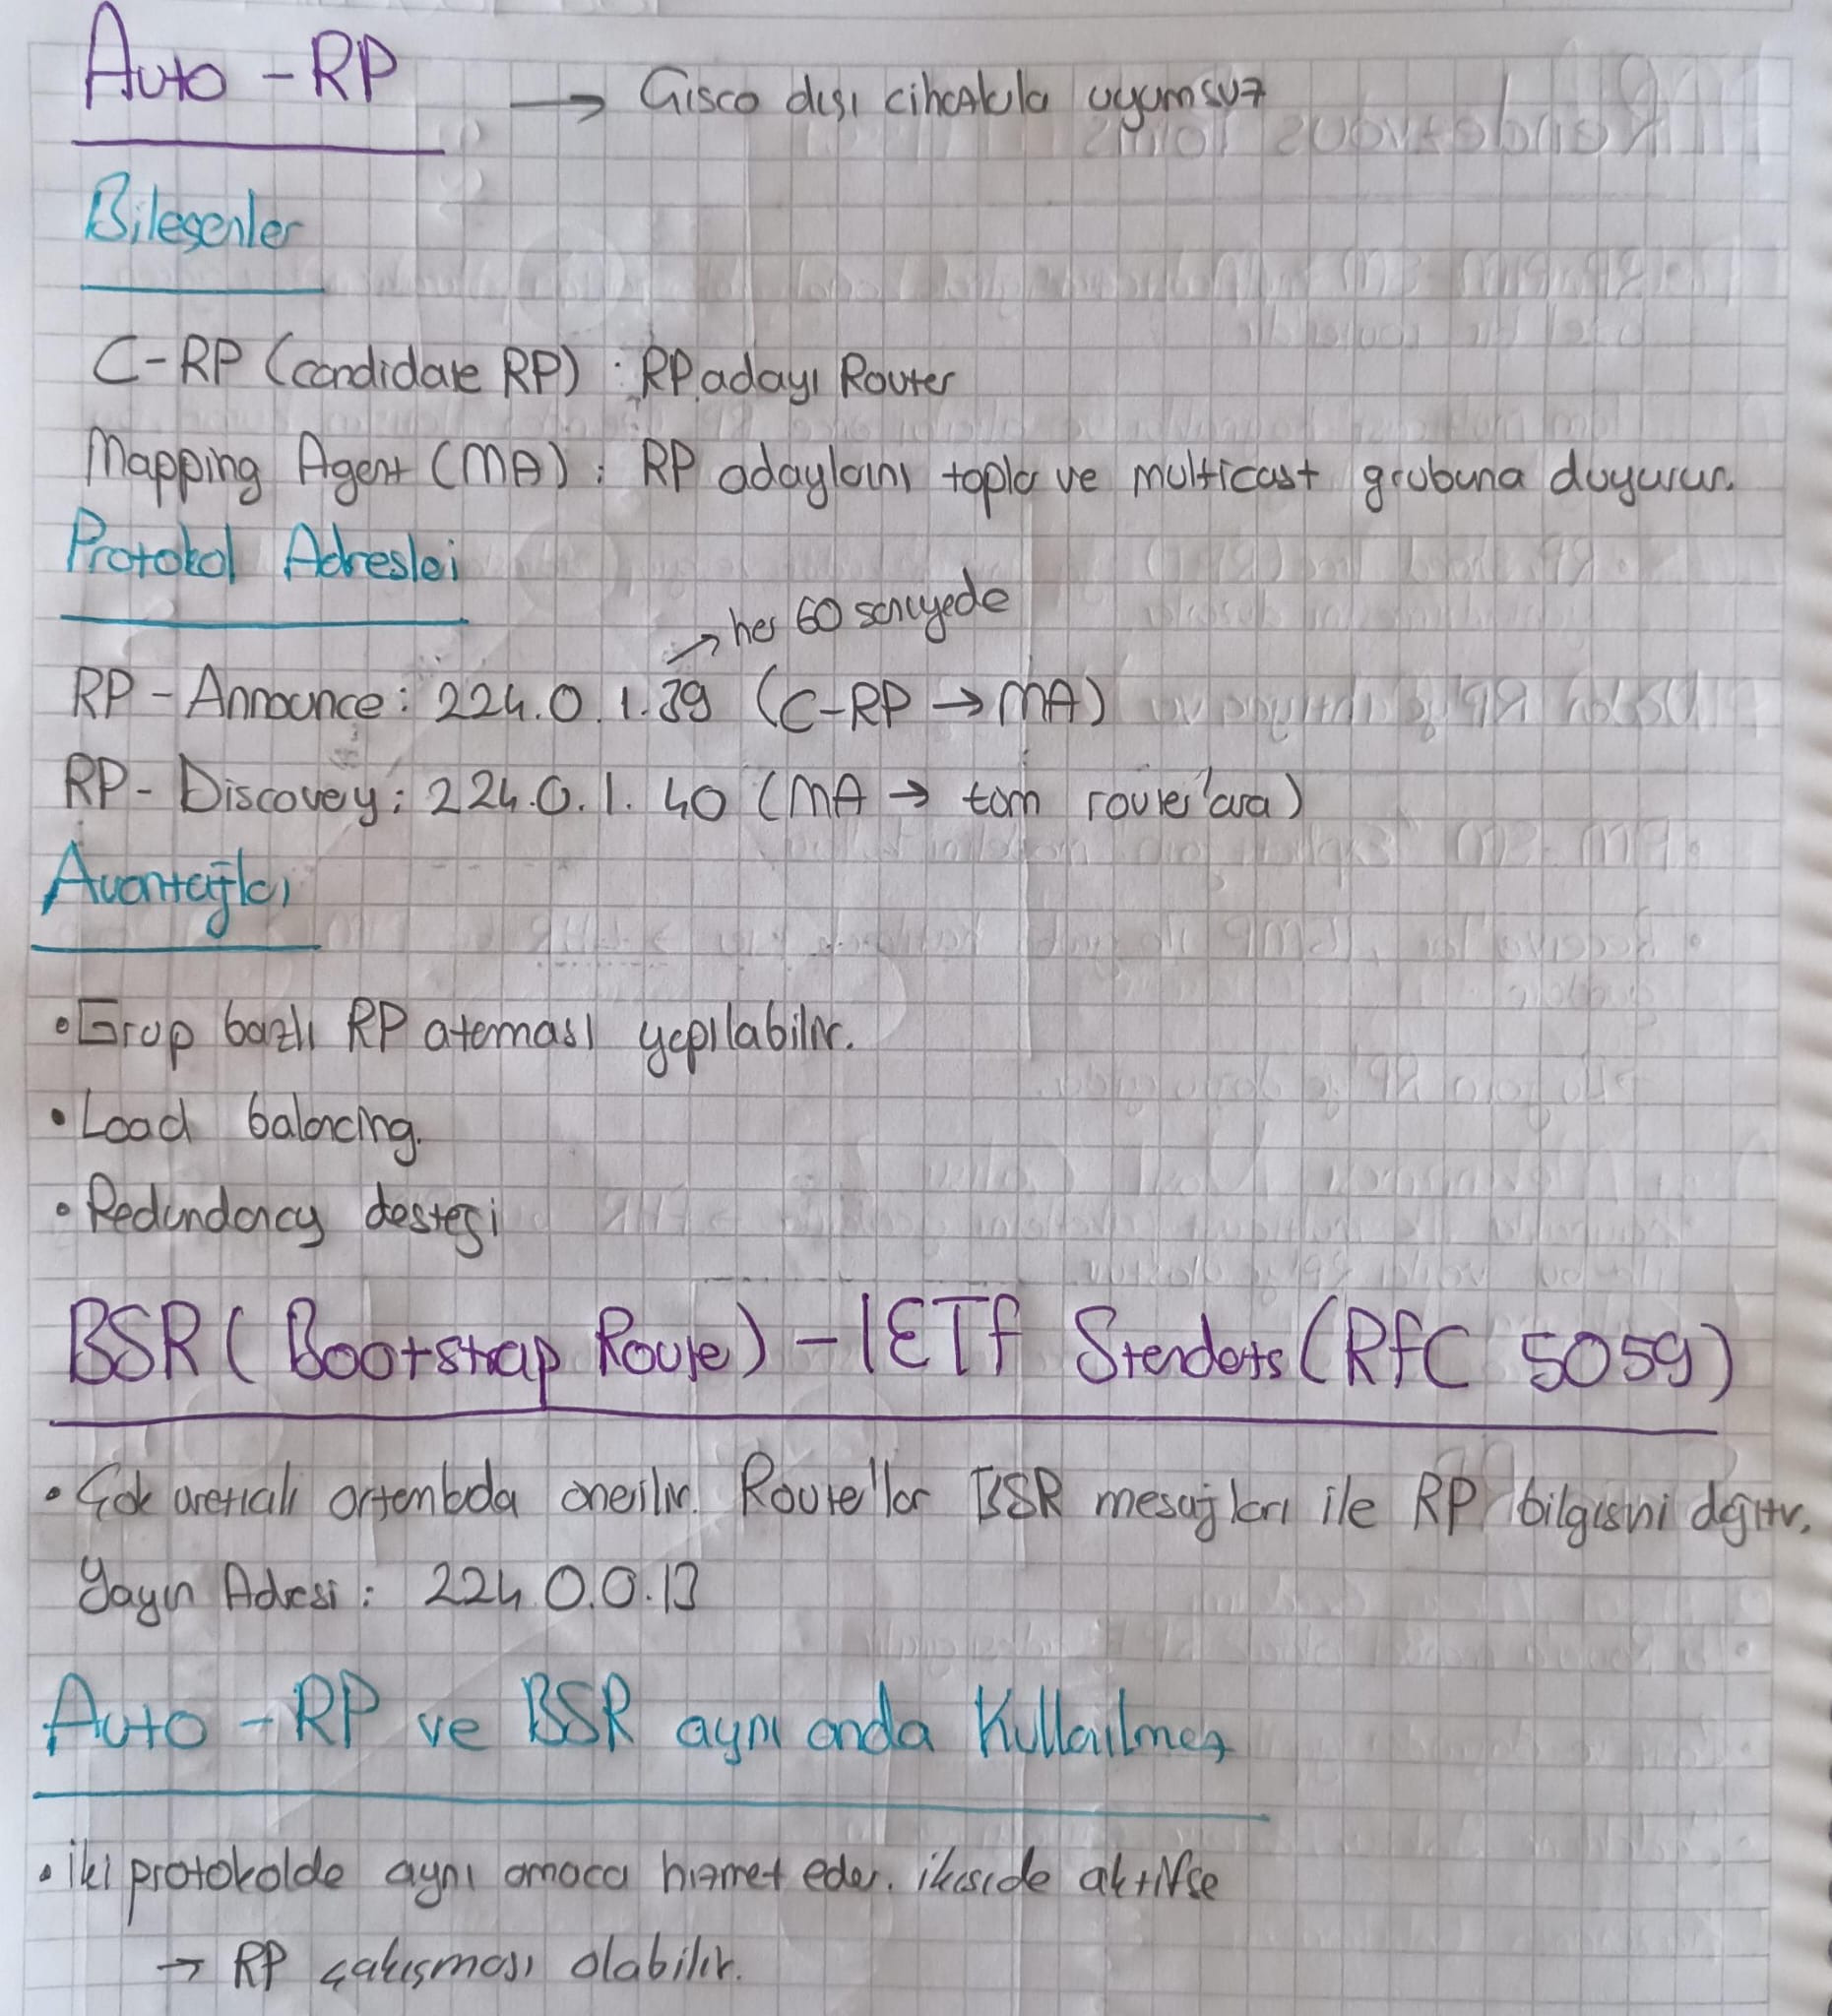 Auto - RP → Cisco dışı cihazlarla uyumsuz
Bileşenler
C-RP (candidate RP) : RP adayı Router
Mapping Agent (MA) : RP adaylarını toplar ve multicast grubuna duyurur.
Protokol Adresleri
→ her 60 saniyede
RP - Announce : 224.0.1.39 (C-RP → MA)
RP - Discovey : 224.0.1.40 (MA → tüm router'lara)
Avantajları
• Grup bazlı RP ataması yapılabilir.
• Load balancing.
• Redundancy desteği
BSR ( Bootstrap Router) - IETF Standartı (RFC 5059)
• Çok üreticili ortamlarda önerilir. Router'lar BSR mesajları ile RP bilgisini dağıtır.
Yayın Adresi : 224.0.0.13
Auto - RP ve BSR aynı anda Kullanılmaz
• iki protokolde aynı amaca hizmet eder. ikiside aktifse
→ RP çakışması olabilir.